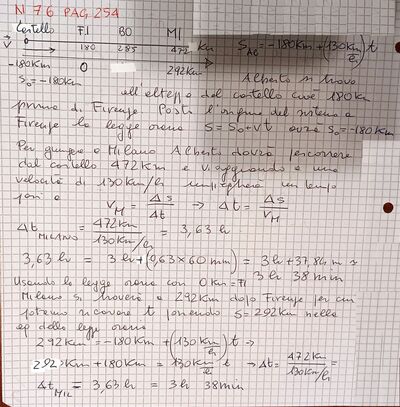 N 76 PAG 254
Castello FI BO MI
V 0 180 285 472 Km S_AB = -180Km + (130 Km/h) t
-180Km 0 292Km
S₀ = -180Km Alberto si trova
all'altezza del castello cioè 180Km
prima di Firenze. Posta l'origine del sistema a
Firenze la legge oraria S = S₀ + Vt avrà S₀ = -180Km
Per giungere a Milano Alberto dovrà percorrere
dal castello 472Km e viaggiando a una
velocità di 130Km/h impiegherà un tempo
pari a V_M = Δs/Δt → Δt = Δs/V_M
Δt_MILANO = 472Km / 130Km/h = 3,63 h
3,63 h = 3h + (0,63 x 60 min) = 3h + 37,8 min ≈
3h 38 min
Usando la legge oraria con 0 Km = FI
Milano si troverà a 292 Km dopo Firenze per cui
potremo ricavare t ponendo S = 292Km nella
eq della legge oraria
292Km = -180Km + (130 Km/h) t →
292Km + 180Km = 130 Km/h t → Δt = 472Km / 130Km/h =
Δt_MIL = 3,63h = 3h 38min